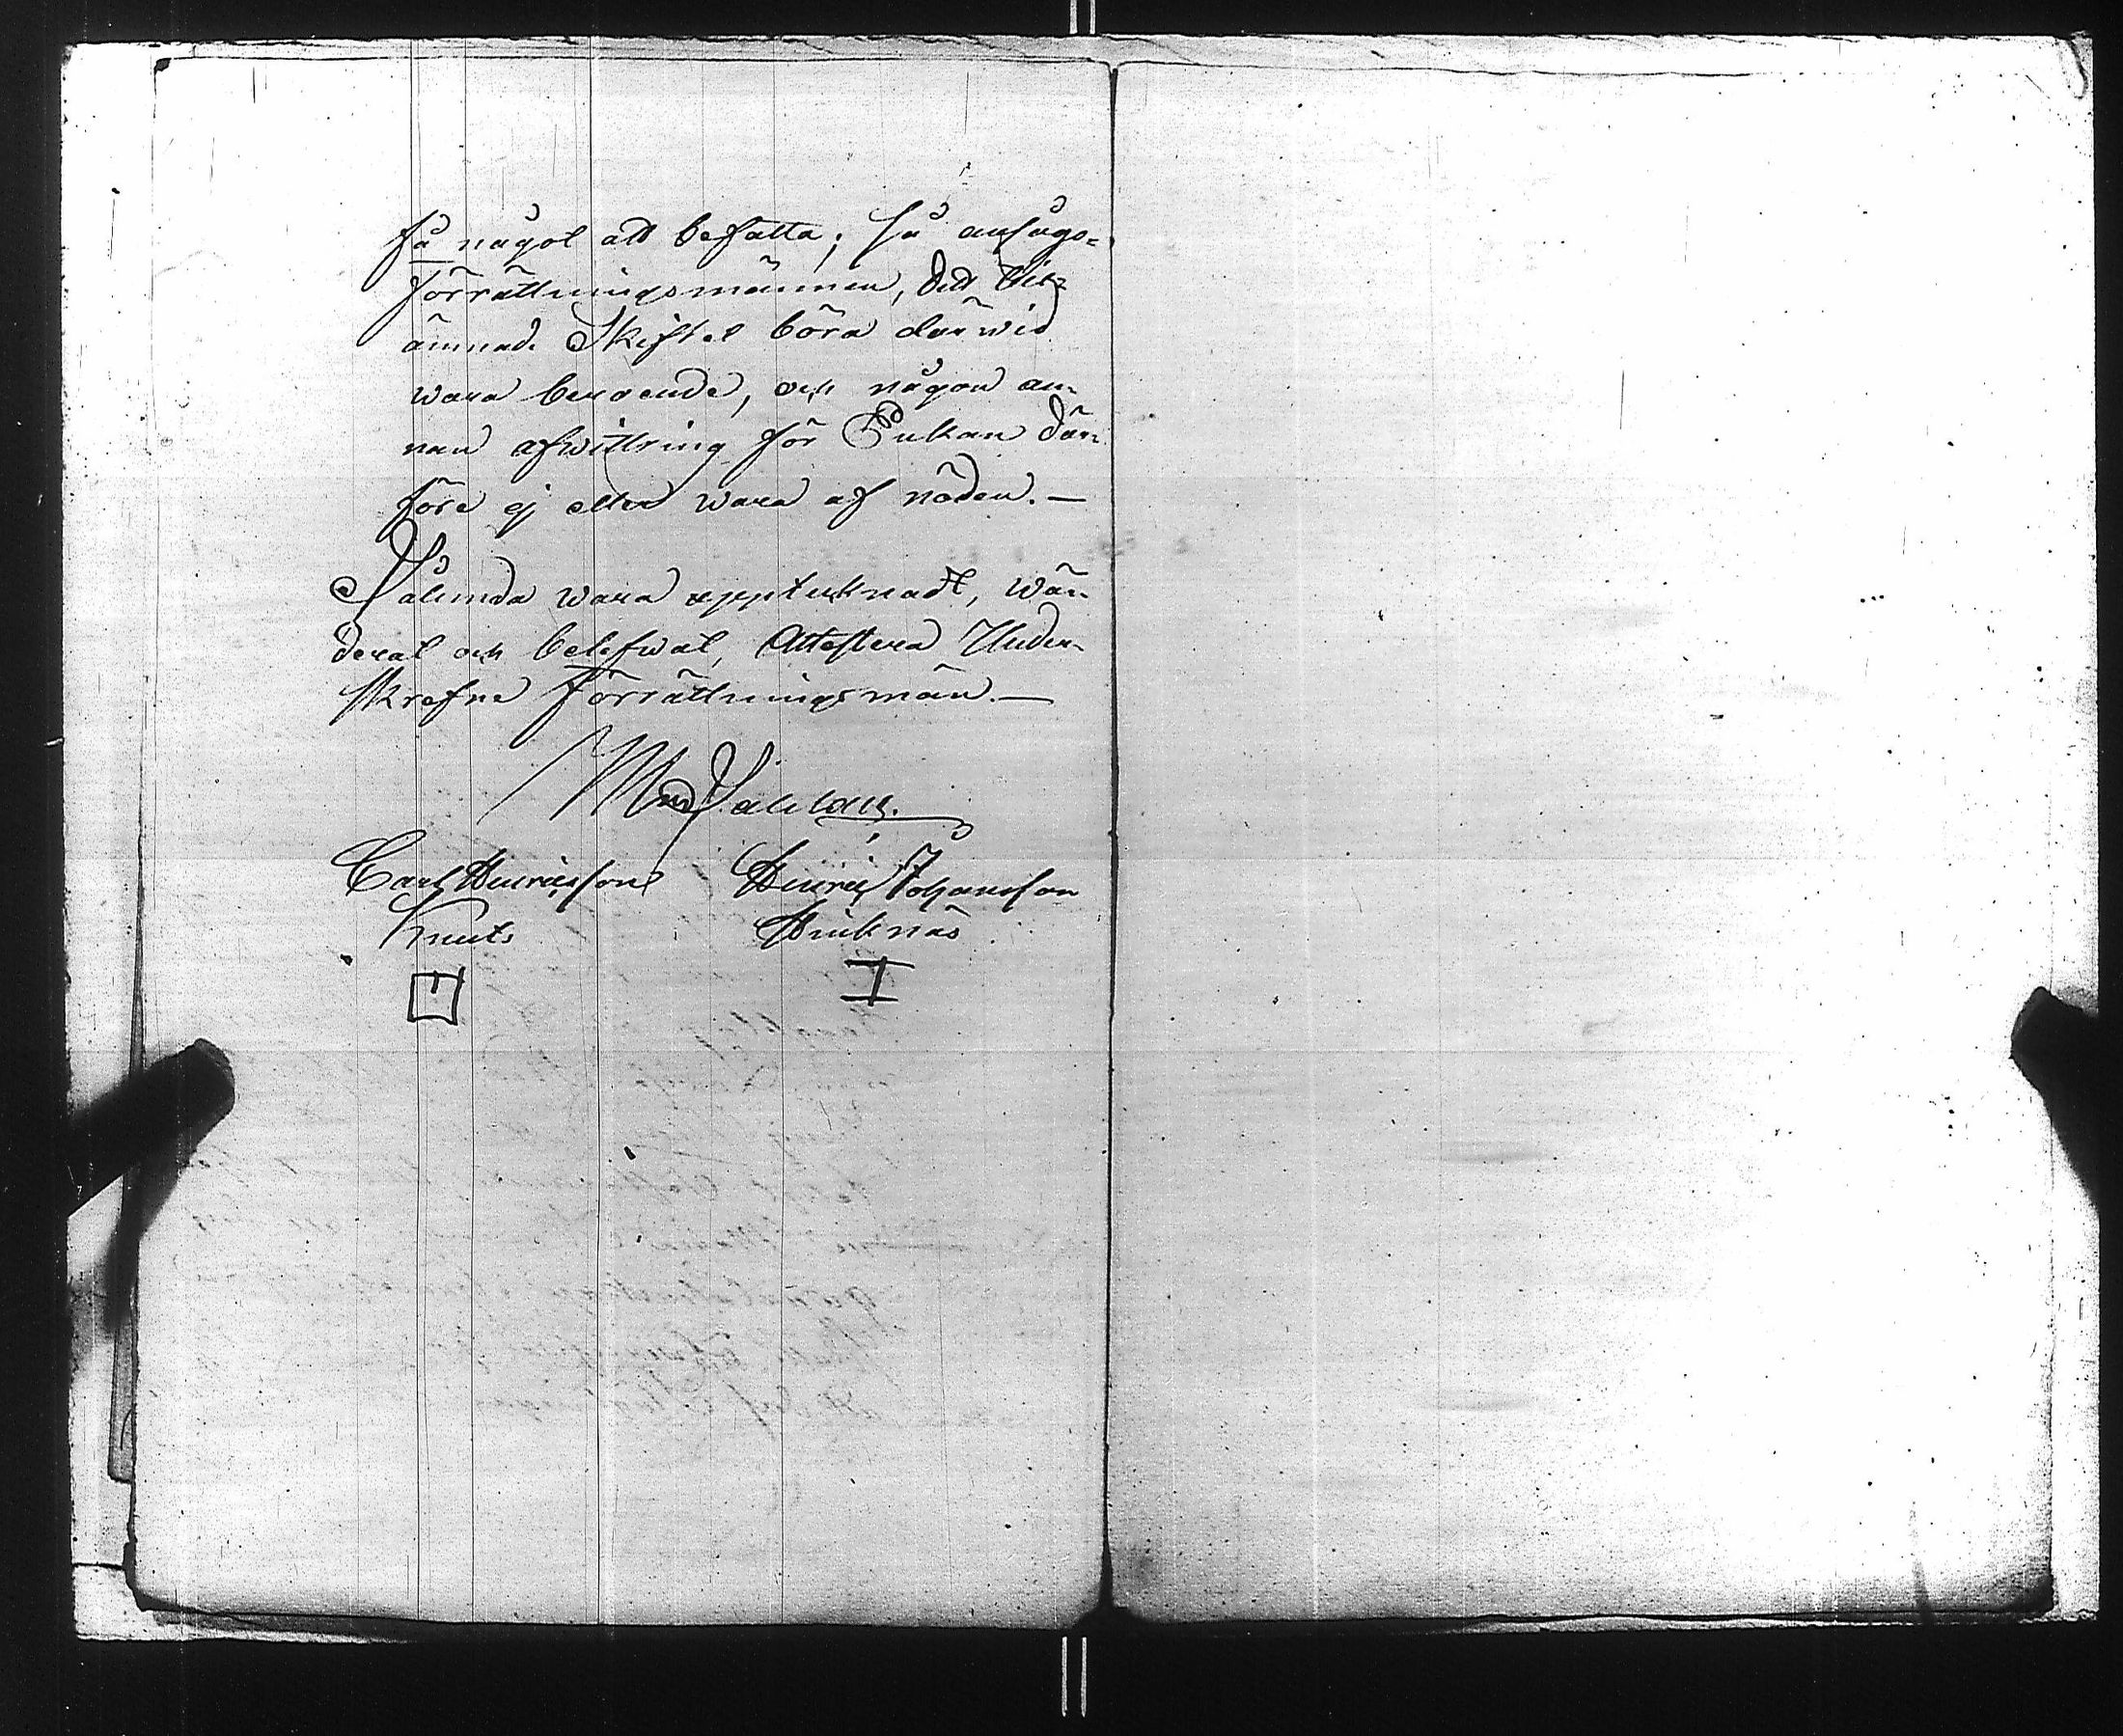 få något att befatta; så ansågo-
förrättningsmännen, det till-
ämnade Skiftet böra därwid
wara beroende, och någon an-
nan afwittring för Pukan där-
före ej eller wara af nöden.—
Sålunda wara upptecknadt, wär-
derat och belefwat, Attestera Under-
skrefne Förrättningsmän.—
Carl Henricsson Henric Johansson
Knuts Henriknäs